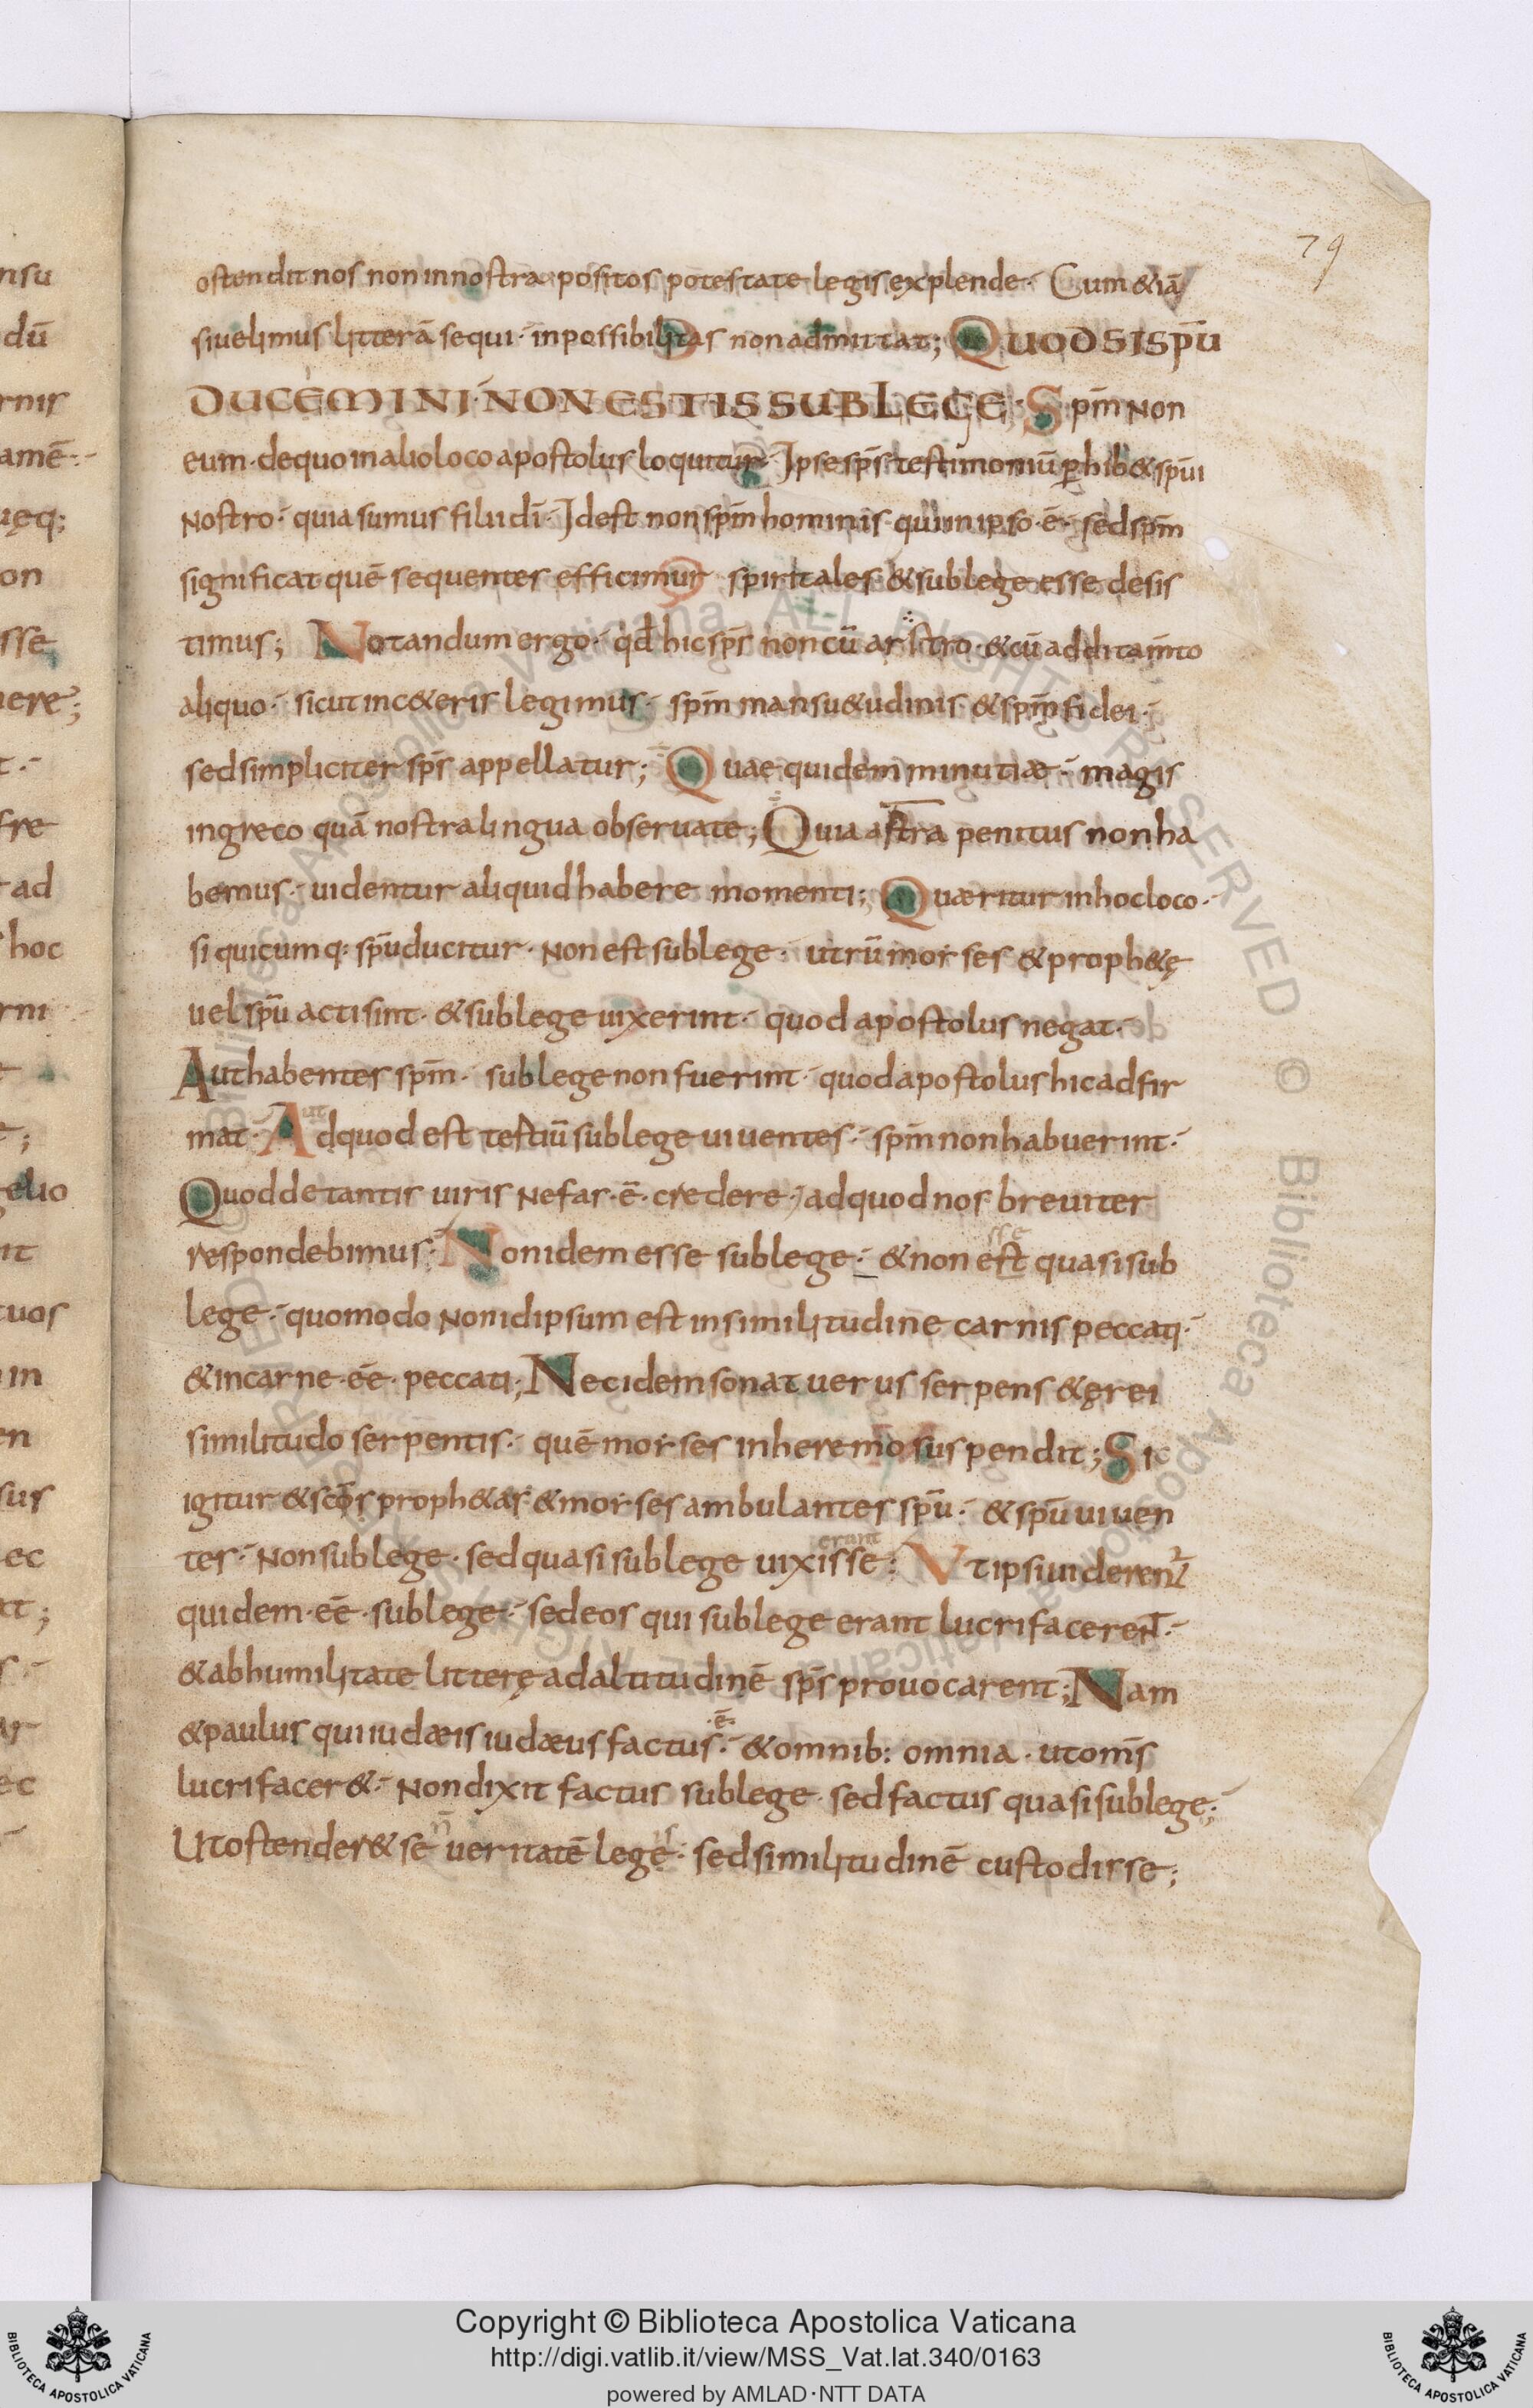 79
ostendit nos non in nostra positos potestate legis explende · Cum &iā
si uelimus litterā sequi · inpossibilitas non admittat; QUOD SI SPŪ
DUCEMINI · NON ESTIS SUB LEGE · Spm̄ non
eum · de quo in alio loco apostolus loquitur · Ipse sp̄s testimoniū ꝑhib& spūi
nostro · quia sumus filii dī · Idest non spm̄ hominis qui in ipso · ē · sed spm̄
significat quē sequentes efficimur spiritales & sub lege esse desis
timus; Notandum ergo · qd̄ hic sp̄s non cū arstro · & cū additam̄to
aliquo · sicut in c&eris legimus · spm̄ mansu&udinis & spm̄ fidei ·
sed simpliciter sp̄s appellatur; Quae quidem minutiæ · magis
in greco quā nostra lingua obseruate; Quia astra penitus non ha
bemus · uidentur aliquid habere momenti; Quæritur in hoc loco ·
si quicumq: spū ducitur · non est sub lege · utrū morses & proph&ę
uel spū acti sint · & sub lege uixerint · quod apostolus negat ·
Aut habentes spm̄ · sub lege non fuerint · quod apostolus hic adfir
mat · Adquod est testiū sub lege uiuentes · spm̄ non habuerint ·
Quod de tantis uiris nefas · ē · credere · ad quod nos breuiter
respondebimus · Non idem esse sub lege · & non est quasi sub
lege · quomodo non idipsum est in similitudine carnis peccati ·
& in carne · eē · peccati; Nec idem sonat uerus serpens & ęrei
similitudo serpentis · quē morses in heremo suspendit; Sic
igitur & scōs proph&as & morses ambulantes spū · & spū uiuen
tes · non sub lege · sed quasi sub lege uixisse: Ut ipsi uiderent
erant
quidem · eē · sub lege · sed eos qui sub lege erant lucrifacerent ·
& ab humilitate litterę ad altitudinē sp̄s prouocarent; Nam
& paulus qui iudæis iudæus factus · ē · & omnib: omnia · ut om̄s
lucrifacer& · non dixit factus sub lege · sed factus quasi sub lege;
Ut ostender& se n̄ ueritatē legis · sed similitudinē custodisse;
Copyright © Biblioteca Apostolica Vaticana
http://digi.vatlib.it/view/MSS_Vat.lat.340/0163
powered by AMLAD·NTT DATA